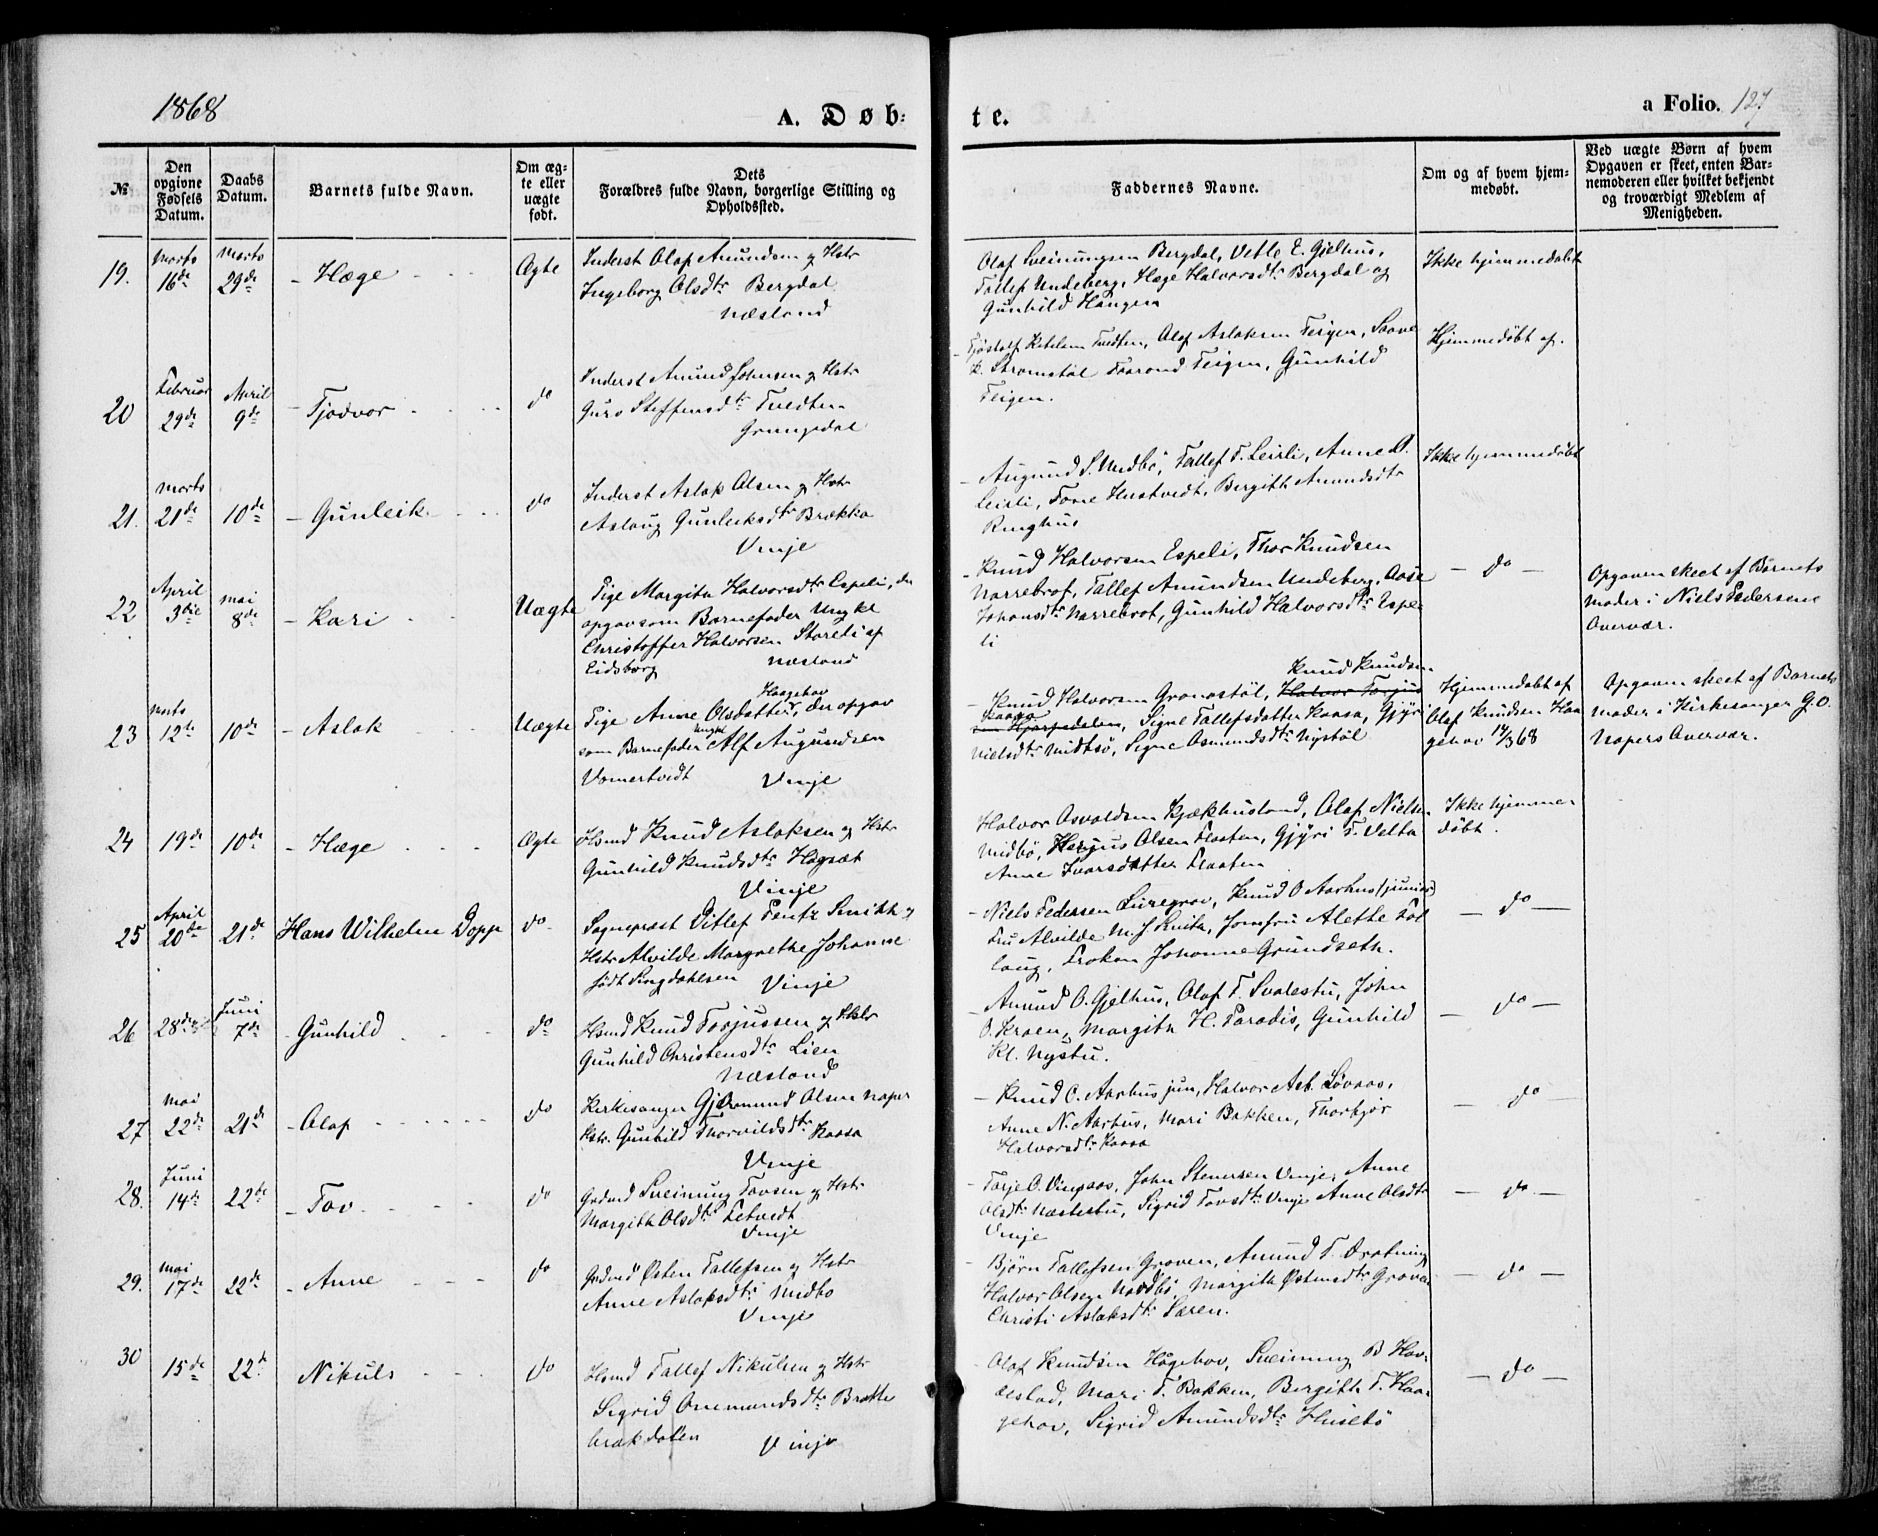 1868
A. Døb=
te.
a Folio. 127
№
Den opgivne Fødsels Datum.
Daabs Datum.
Barnets fulde Navn.
Om ægte eller uægte født.
Dets Forældres fulde Navn, borgerlige Stilling og Opholdssted.
Faddernes Navne.
Om og af hvem hjemmedøbt.
Ved uægte Børn af hvem Opgaven er skeet, enten Barnemoderen eller hvilket bekjendt og troværdigt Medlem af Menigheden.
19. Marts 16de Marts 29de - Hæge Ægte
Inderst Olaf Amundsen og Hstr
Ingeborg Olsdtr Bergdal
Næsland
Olaf Sveinungsen Bergdal, Vetle E. Gjelhus,
Tallef Undeberg, Hæge Halvorsdtr Bergdal og
Gunhild Haugen
Ikke hjemmedøbt
20 Februar 29de April 9de - Tjodvor do
Inderst Amund Johnsen og Hstr
Guro Steffensdtr Tvedten
Grungedal
- Tjostolf Ketilsen Tvedten, Olaf Aslaksen Teigen, Saave
K. Strømstøl Taarand Teigen, Gunhild
Teigen.
Hjemmedøbt af.
21. Marts 21de 10de - Gunleik do
Inderst Aslak Olsen og Hstr
Aslaug Gunleiksdtr Brække
Vinje
- Augund S. Midbø, Tallef T. Leirli, Anne A.
Leirli, Tone Hustvedt, Bergith Amundsdtr
Ringhus
Ikke hjemmedøbt
22 April 3die Mai 8de - Kari Uægte
Pige Margita Halvorsdtr Espeli, der
opgav som Barnefader Ungkl
Christoffer Halvorsen Storeli af
Eidsborg Næsland
- Knud Halvorsen Espeli, Thor Knudsen
Narrebrot, Tallef Amundsen Undeberg, Aase
Johansdtr Narrebrot, Gunhild Halvorsdtr Espe-
li
- do -
Opgaven skeet af Barnets
Moder i Niels Pedersens
Overvær.
23 Marts 12te 10de - Aslak Uægte
Haagehov
Pige Anne Olsdatter, der opgav
som Barnefader Ungkl Alf Augundsen
Vomertvedt Vinje
Knud Knudsen
- Knud Halvorsen Gronastøl, Halvor Torjus
Kaasa
sen Hjerpedalen, Signe Tallefsdatter Kaasa, Gjyri
Nielsdtr Midtbø, Signe Osmundsdtr Nystøl
Hjemmedøbt af
Olaf Knudsen Haa
gehov 14/3 68
Opgaven skeet af Barnets
Moder i Kirkesanger G. O.
Napers Overvær.
24 19de 10de - Hæge Ægte
Hsmd Knud Aslaksen og Hstr
Gunhild Knudsdtr Hogsæt
Vinje
Halvor Osvaldsen Kjækhusland, Olaf Nielsen
Midbø, Torjus Olsen Flaaten, Gjyri T. Velta
Anne Ivarsdatter Flaaten
Ikke hjemme-
døbt.
25 April 20de 21de Hans Wilhelm Dopp do
Sognepræst Ditlef Fentz Smith og
Hstr Alvilde Margrethe Johanne
født Singdahlsen Vinje
- Niels Pedersen Luregrav, Knud O Aarhus (junior)
Fru Alvilde M. J Smith, Jomfru Alethe Fol
laug, Frøken Johanne Grundseth.
- do -
26 28de Juni 7de - Gunhild do
Hsmd Knud Torjussen og Hstr
Gunhild Christensdtr Lien
Næsland
- Amund O. Gjelhus, Olaf T. Svalestu, John
O. Kroen, Margith H. Paradis, Gunhild
Kl. Nystu.
- do -
27 Mai 22de 21de - Olaf do
Kirkesanger Gjermund Olsen Naper
Hstr. Gunhild Thorvildsdtr Kaasa
Vinje
- Knud O. Aarhus jun, Halvor Asb. Løvaas,
Anne N. Aarhus, Mari Bakken, Thorbjør
Halvorsdtr Kaasa
- do -
28. Juni 14de 22de - Tov do
Grdmd Sveinung Tovsen og Hstr
Margith Olsdtr Fetvedt
Vinje
- Torje O. Vinjaas, John Stenersen Vinje, Anne
Olsdtr Næstestu, Sigrid Tovsdtr Vinje Anne Olsdtr
Vinje
- do -
29. Mai 17de 22de - Anne do
Grdmd Østen Tallefsen og Hstr
Anne Aslaksdtr Midbø
Vinje
- Bjørn Tallefsen Groven, Amund T. Drotning
Halvor Olsen Nordbø, Margith Østensdtr Groven
Christi Aslaksdtr Saren.
- do -
30 15de 22de Nikuls do
Hsmd Tallef Nikulsen og Hstr
Sigrid Onemundsdtr Bratte
brækdalen Vinje
- Olaf Knudsen Høgehov, Sveinung B Hov-
destad, Mari T. Bakken, Bergith T. Haa-
gehov, Sigrid Amundsdtr Husebø
- do -